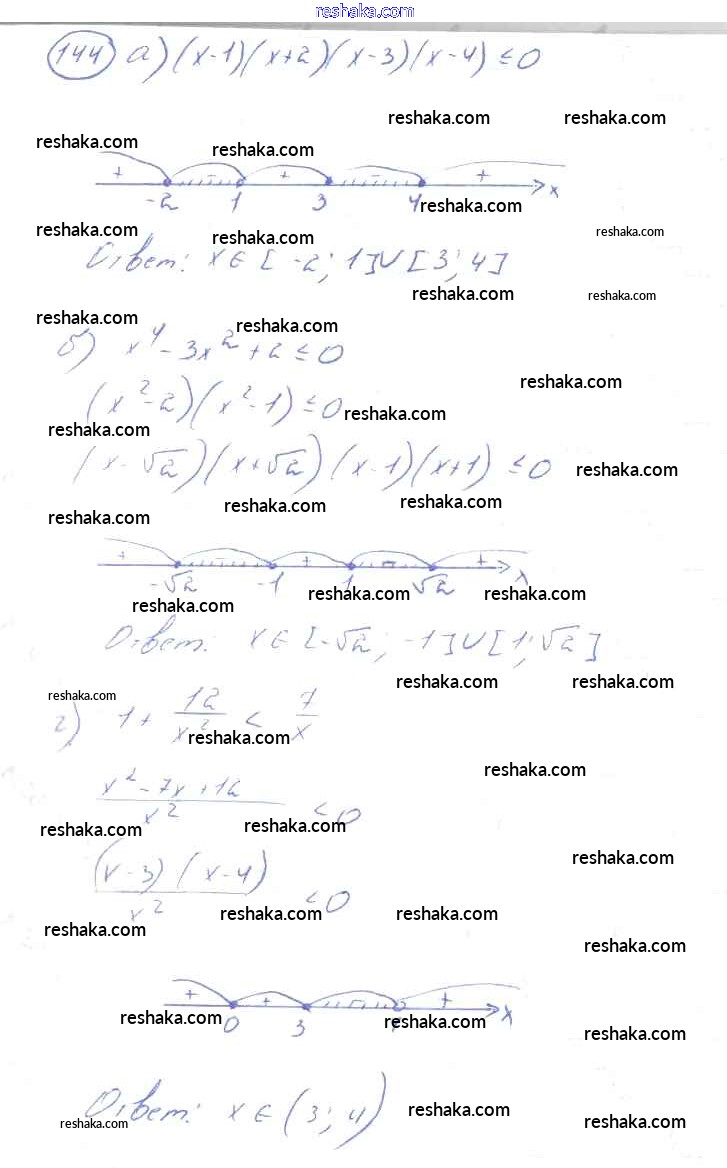 reshaka.com
144 а) (x-1)(x+2)(x-3)(x-4) ≤ 0
reshaka.com reshaka.com
reshaka.com reshaka.com
+ - + - + x
-2 1 3 4 reshaka.com
reshaka.com reshaka.com reshaka.com
Ответ: x ∈ [-2; 1] ∪ [3; 4]
reshaka.com reshaka.com
reshaka.com reshaka.com
б) x⁴ - 3x² + 2 ≤ 0
reshaka.com
(x²-2)(x²-1) ≤ 0 reshaka.com
reshaka.com
(x-√2)(x+√2)(x-1)(x+1) ≤ 0 reshaka.com
reshaka.com reshaka.com
reshaka.com
+ - + - + x
-√2 -1 1 √2 reshaka.com reshaka.com
reshaka.com
Ответ: x ∈ [-√2; -1] ∪ [1; √2]
reshaka.com reshaka.com
reshaka.com
г) 1 + 12/x² < 7/x
reshaka.com
reshaka.com
(x² - 7x + 12)/x² < 0
reshaka.com reshaka.com
reshaka.com
(x-3)(x-4)/x² < 0
reshaka.com reshaka.com
reshaka.com reshaka.com
+ + - + x
0 3 reshaka.com reshaka.com
reshaka.com
Ответ: x ∈ (3; 4)
reshaka.com
reshaka.com reshaka.com